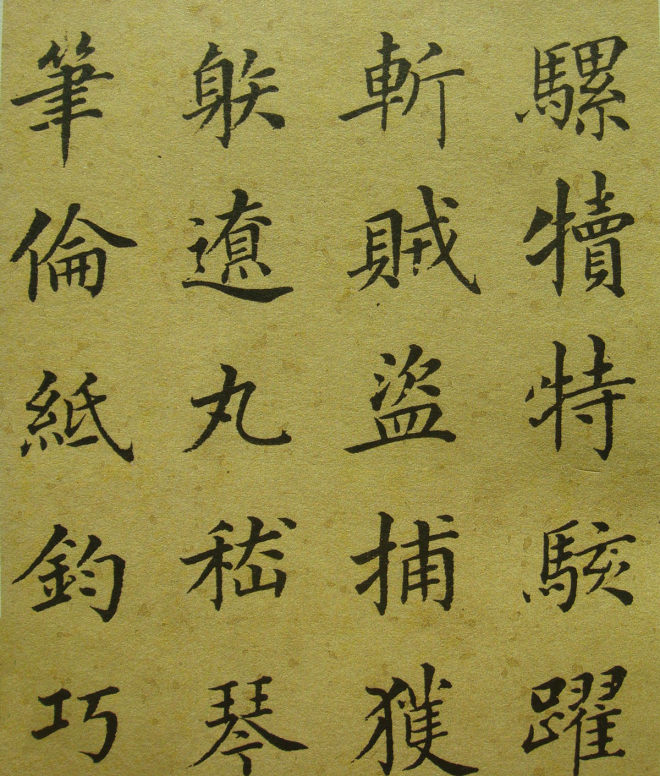 騾犢特駭躍
斬賊盜捕獲
䠶遼丸嵇琴
筆倫紙鈞巧